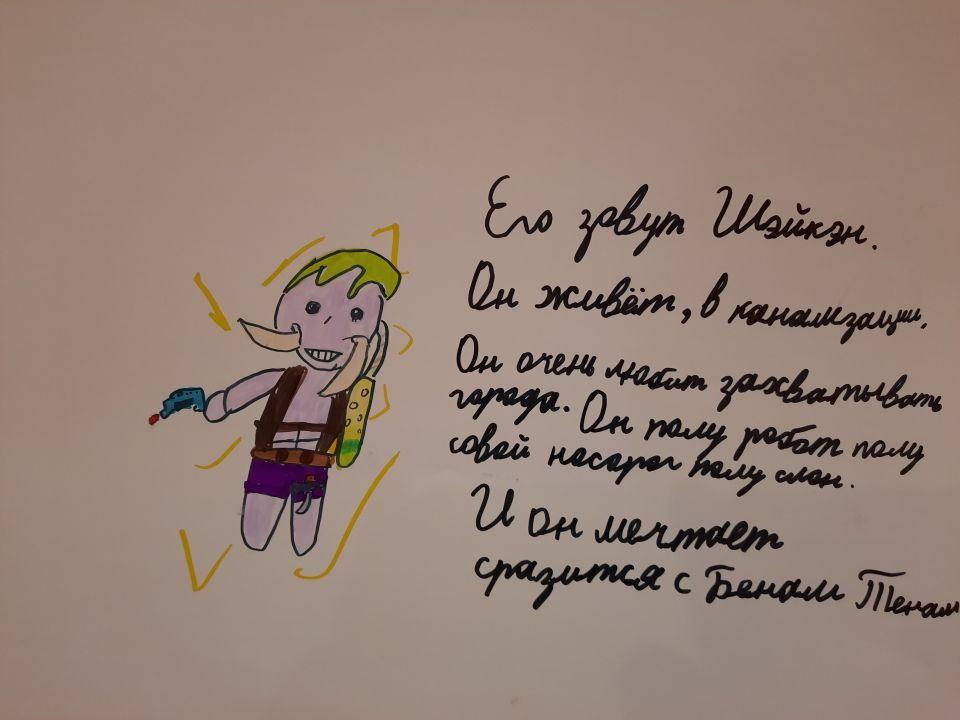 Его зовут Шэйкэн.
Он живёт, в канамзации.
Он очень любит захватывать
города. Он полу робот полу
совой носорог полу слон.
И он мечтает
сразится с Бенам Тенам